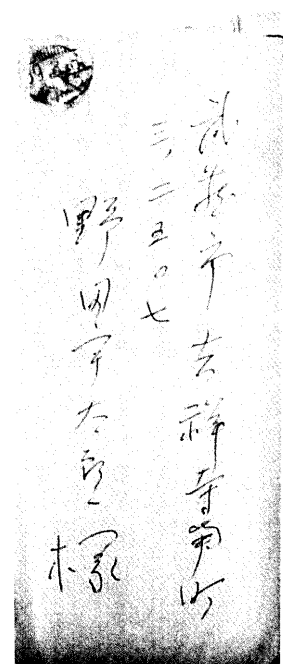 武蔵市吉祥寺南町
三、二五〇七
野田宇太郎様